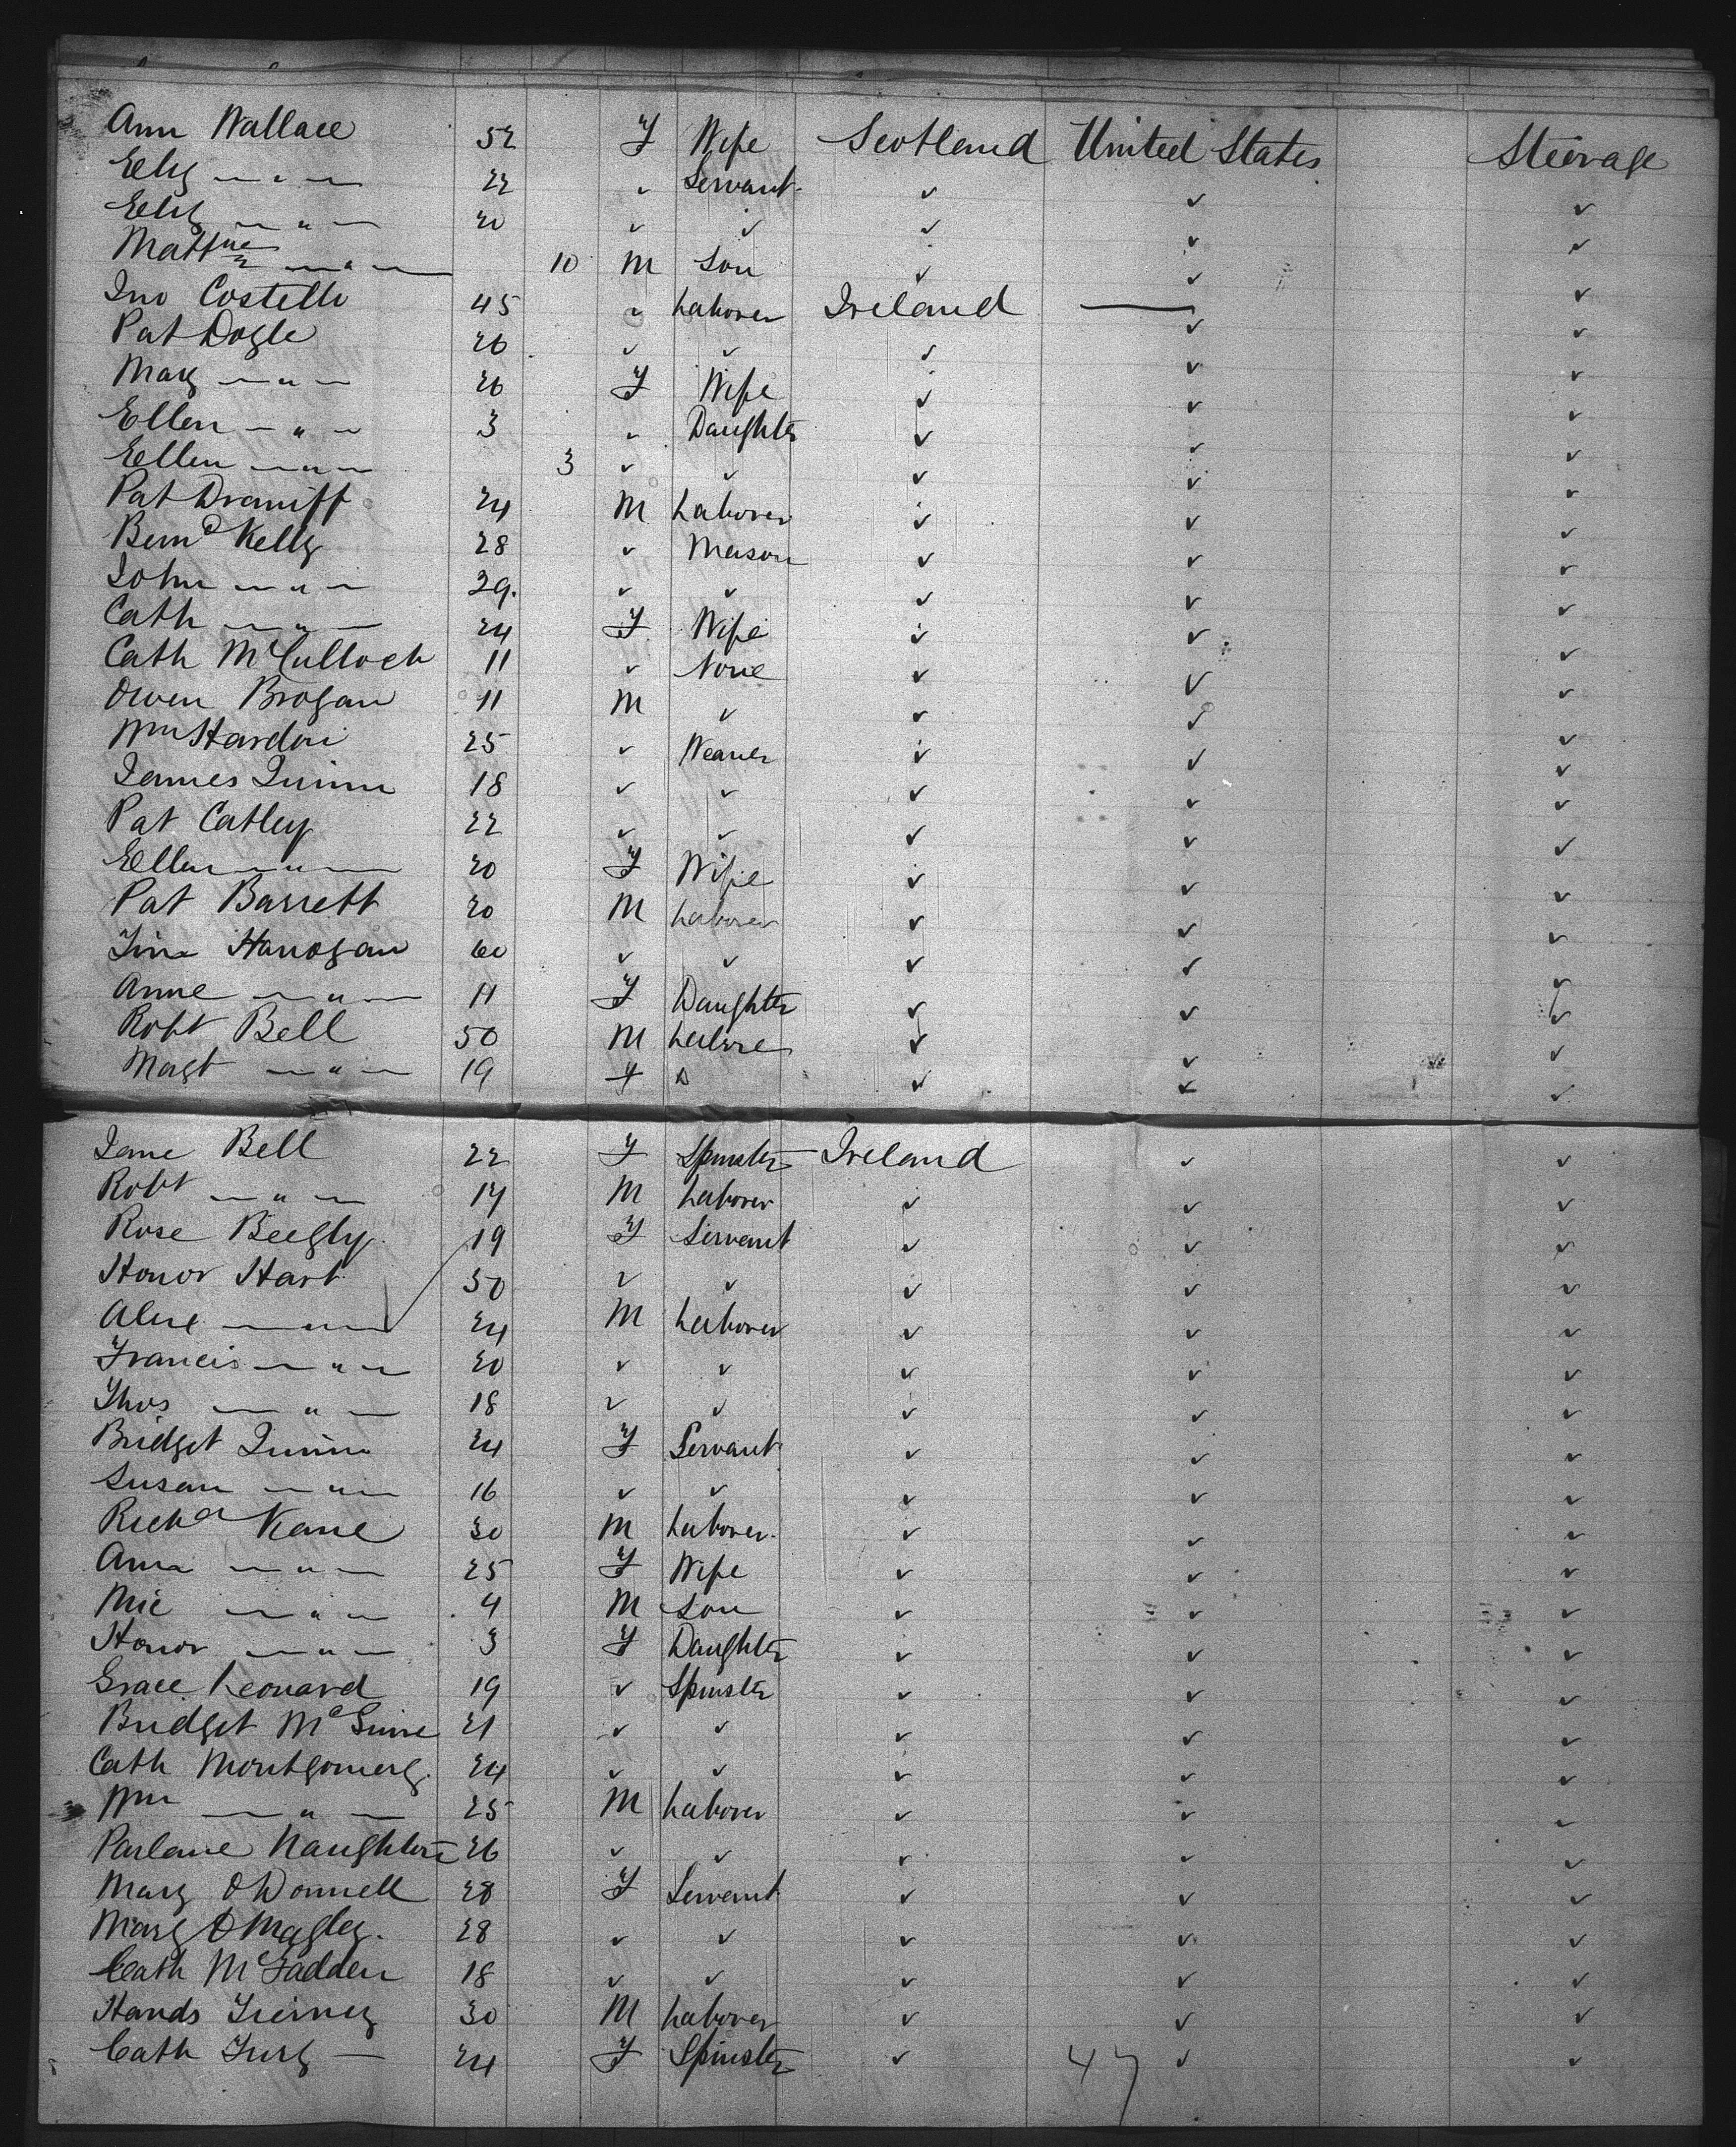 Ann Wallace 52 F Wife Scotland United States Steerage
Eliz — " — 22 " Servant ✓ ✓ ✓
— " — 20 ✓ ✓ ✓ ✓ ✓
— " — 10 M Son ✓ ✓ ✓
Jno Costello 45 " Laborer Ireland — ✓ ✓
Pat Dogle 26 ✓ ✓ ✓ ✓ ✓
Mary — " — 26 F Wife ✓ ✓ ✓
Ellen — " — 3 ✓ Daughter ✓ ✓ ✓
Ellen — " — 3 ✓ ✓ ✓ ✓ ✓
Pat 24 M Laborer ✓ ✓ ✓
Bernd Kelly 28 ✓ Mason ✓ ✓ ✓
John — " — 29. ✓ ✓ ✓ ✓ ✓
Cath — " — 24 F Wife ✓ ✓ ✓
Cath McCulloch 11 ✓ None ✓ ✓ ✓
Owen Brogan 11 M ✓ ✓ ✓ ✓
Wm 25 ✓ Weaver ✓ ✓ ✓
James Quinn 18 ✓ ✓ ✓ ✓ ✓
Pat Catley 22 ✓ ✓ ✓ ✓ ✓
Ellen — " — 20 F Wife ✓ ✓ ✓
Pat Barrett 20 M Laborer ✓ ✓ ✓
Hanogan 60 ✓ ✓ ✓ ✓ ✓
Anne — " — 11 F Daughter ✓ ✓ ✓
Robt Bell 50 M Labore ✓ ✓ ✓
Magt — " — 19 f ✓ ✓ ✓
Jane Bell 22 F Spinster Ireland ✓ ✓
Robt — " — 17 M Laborer ✓ ✓ ✓
Rose 19 F Servant ✓ ✓ ✓
Honor Hart 50 ✓ ✓ ✓ ✓ ✓
— " — 24 M Laborer ✓ ✓ ✓
Francis — " — 20 ✓ ✓ ✓ ✓ ✓
Thos — " — 18 ✓ ✓ ✓ ✓ ✓
Bridget Quinn 24 F Servant ✓ ✓ ✓
Susan — " — 16 ✓ ✓ ✓ ✓ ✓
Richd Kane 30 M Laborer. ✓ ✓ ✓
Ann — " — 25 F Wife ✓ ✓ ✓
Mic — " — 4 M Son ✓ ✓ ✓
Honor — " — 3 F Daughter ✓ ✓ ✓
Grace Leonard 19 ✓ Spinster ✓ ✓ ✓
Bridget McGuire 21 ✓ ✓ ✓ ✓ ✓
Cath Montgomery. 24 ✓ ✓ ✓ ✓ ✓
Wm — " — 25 M Laborer ✓ ✓ ✓
Parlane Naughton 26 ✓ ✓ ✓ ✓ ✓
Mary O'Donnell 28 F Servant ✓ ✓ ✓
Mary 28 ✓ ✓ ✓ ✓ ✓
Cath McFadden 18 ✓ ✓ ✓ ✓ ✓
30 M Laborer ✓ ✓ ✓
Cath — 24 F Spinster ✓ 47 ✓ ✓